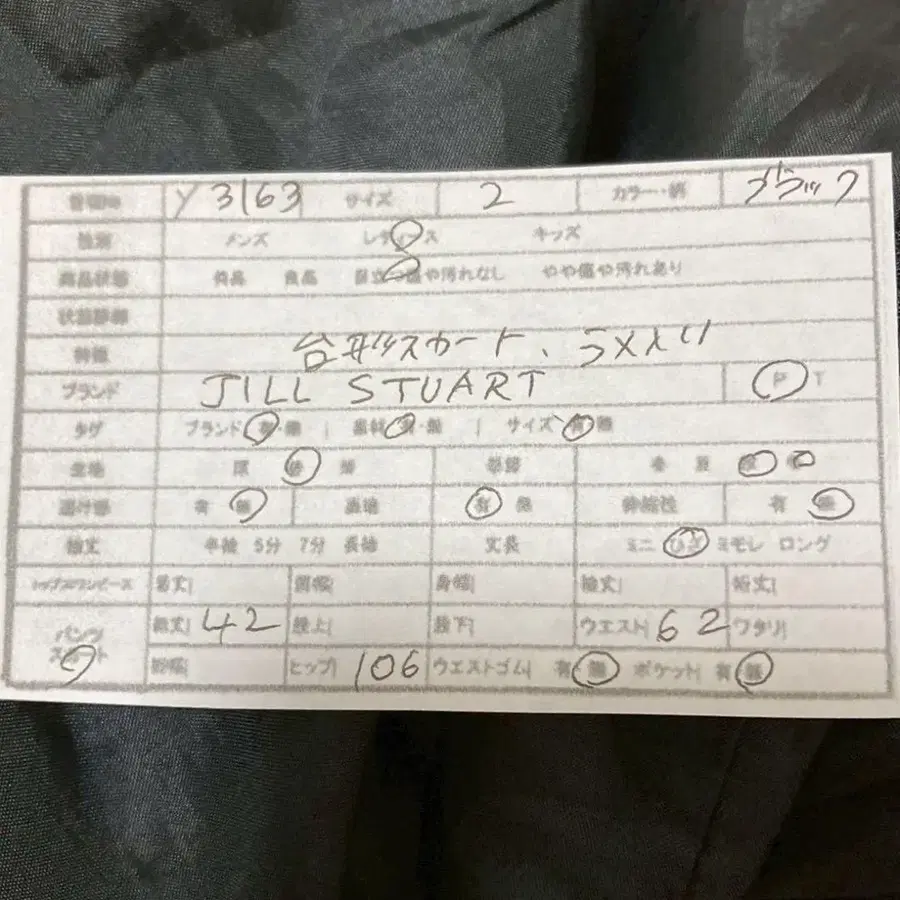 Y3163 サイズ 2 カラー・柄 ブラック
性別 メンズ レディース キッズ
商品状態 美品 良品 目立つ傷や汚れなし やや傷や汚れあり
状態詳細
特徴 台形スカート、ラメ入り
ブランド JILL STUART P T
タグ ブランド 有・無 | 素材 有・無 | サイズ 有・無
生地 厚 普 薄 季節 春 夏 秋 冬
透け感 有 無 裏地 有 無 伸縮性 有 無
袖丈 半袖 5分 7分 長袖 丈長 ミニ ひざ ミモレ ロング
トップス/ワンピース 着丈| 肩幅| 身幅| 袖丈| 裄丈|
パンツ スカート 総丈| 42 股上| 股下| ウエスト| 62 ワタリ|
裾幅| ヒップ| 106 ウエストゴム| 有 無 ポケット| 有 無